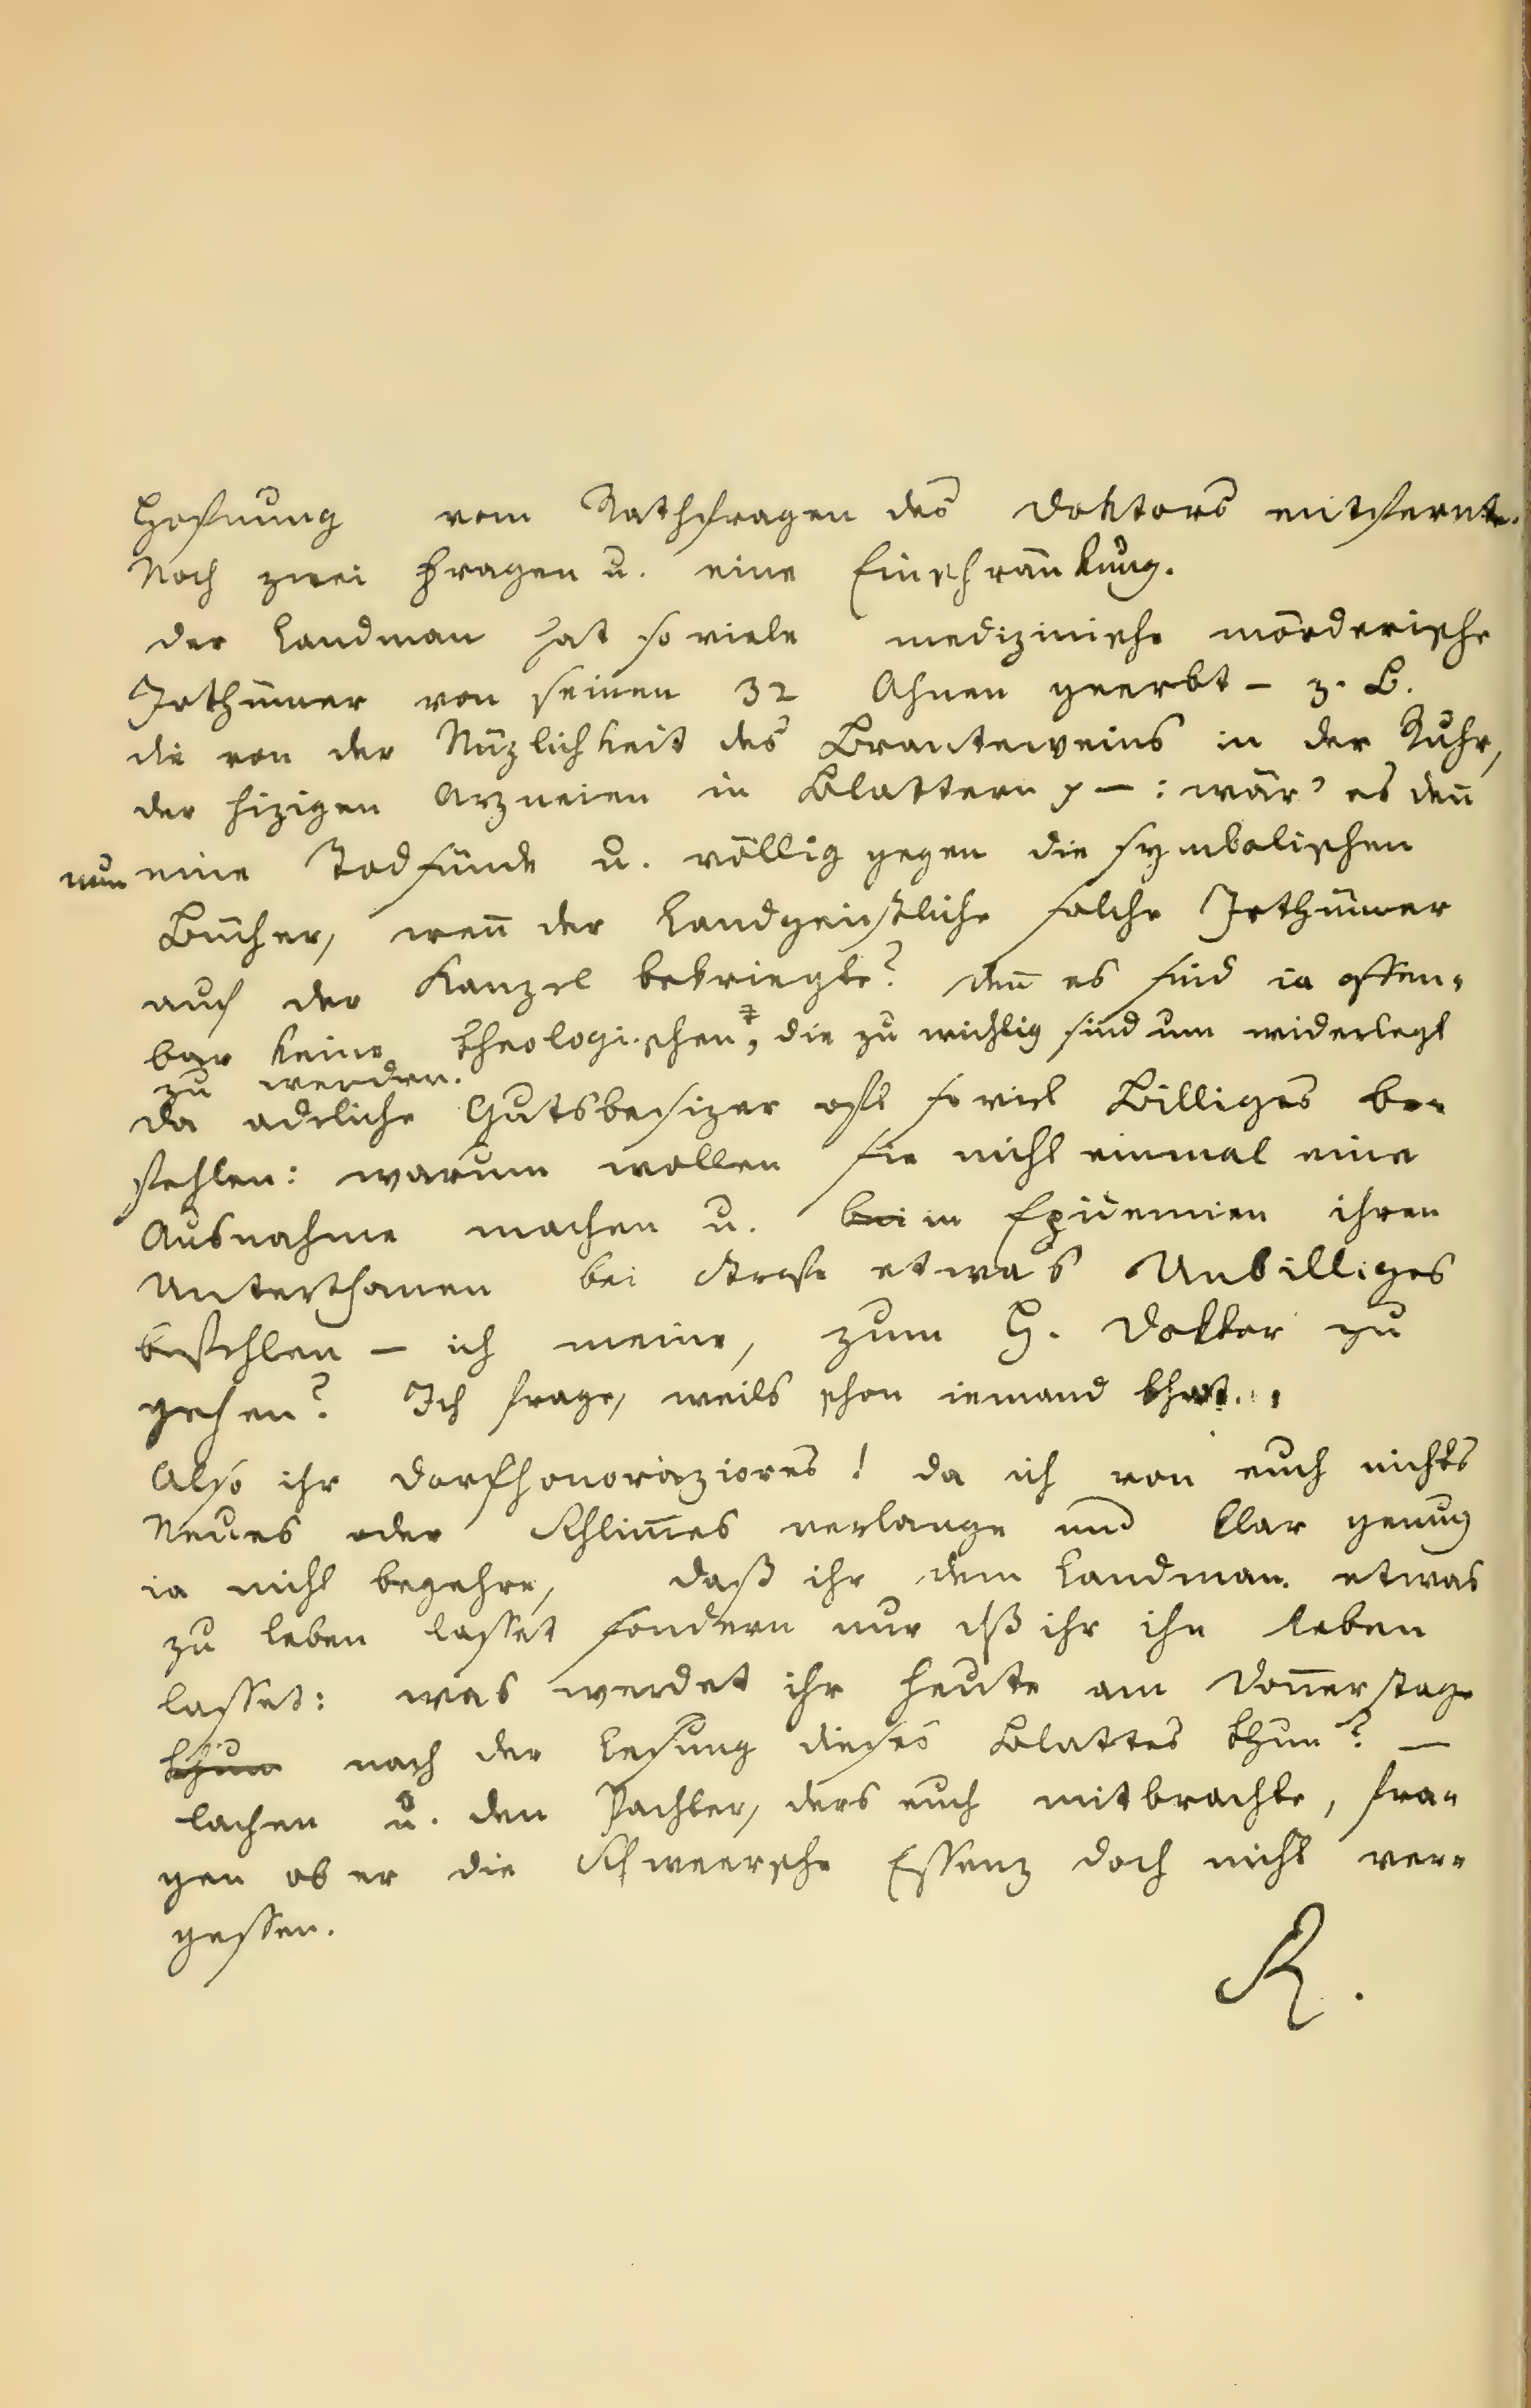 Hofnung vom Rathfragen des Doktors entfernte.
Noch zwei Fragen u. eine Einschränkung.
Der Landman hat so viele medizinische mörderische
Irthümer von seinen 32 Ahnen geerbt – z. B.
die von der Nüzlichkeit des Branteweins in der Ruhr,
der hizigen Arzneien in Blattern p – : wär' es deñ
nun eine Todsünde u. völlig gegen die symbolischen
Bücher, weñ der Landgeistliche solche Irthümer
auf der Kanzel bekriegte? Deñ es sind ia offen-
bar keine theologischen, die zu wichtig sind um widerlegt
zu werden.
Da adeliche Gutsbesizer oft so viel Billiges be-
fehlen: warum wollen sie nicht einmal eine
Ausnahme machen u. bei in Epidemien ihren
Unterthanen bei Strafe etwas Unbilliges
befehlen – ich meine, zum H. Doktor zu
gehen? Ich frage, weils schon iemand that.
Also ihr Dorfhonoraziores! da ich von euch nichts
Neues oder Schlim̄es verlange und klar genug
ia nicht begehre, daß ihr dem Landman etwas
zu leben lasset sondern nur dß ihr ihn leben
lasset: was werdet ihr heute am Doñerstage
thun nach der Lesung dieses Blattes thun? —
lachen u. den Pachter, ders euch mitbrachte, fra-
gen ob er die Schweersche Essenz doch nicht ver-
gessen.
R.